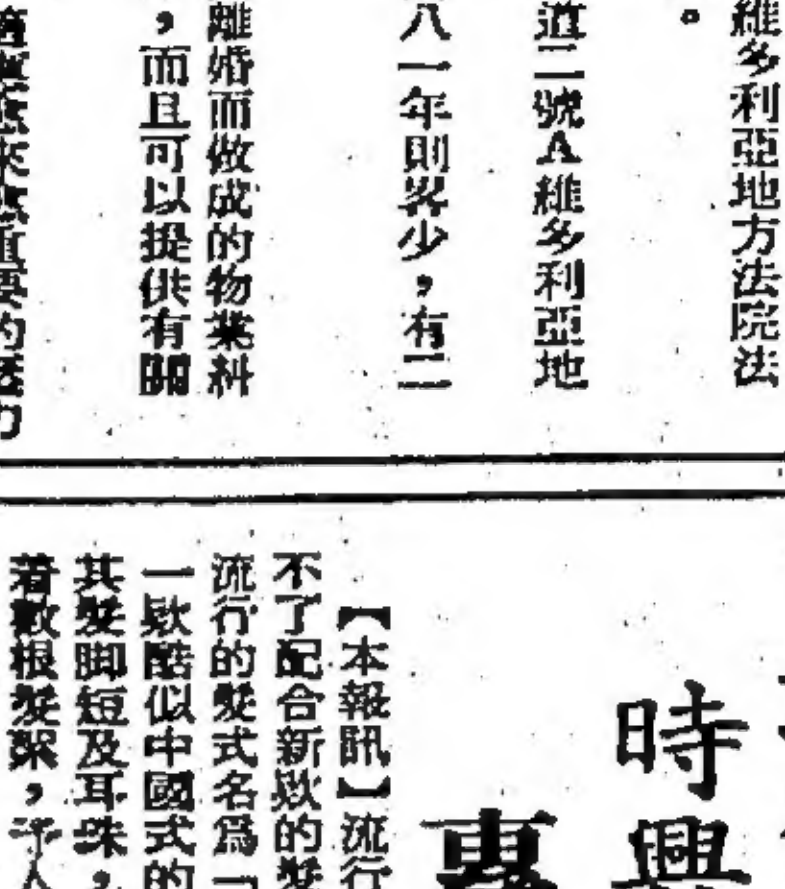 維多利亞地方法院法
。
道二號A維多利亞地
八一年則畧少，有二
離婚而做成的物業糾
，而且可以提供有關
時興
專
【本報訊】流行
不了配合新欵的髮
流行的髮式名爲「
一欵酷似中國式的
其髮脚短及耳珠，
着數根髮絮，